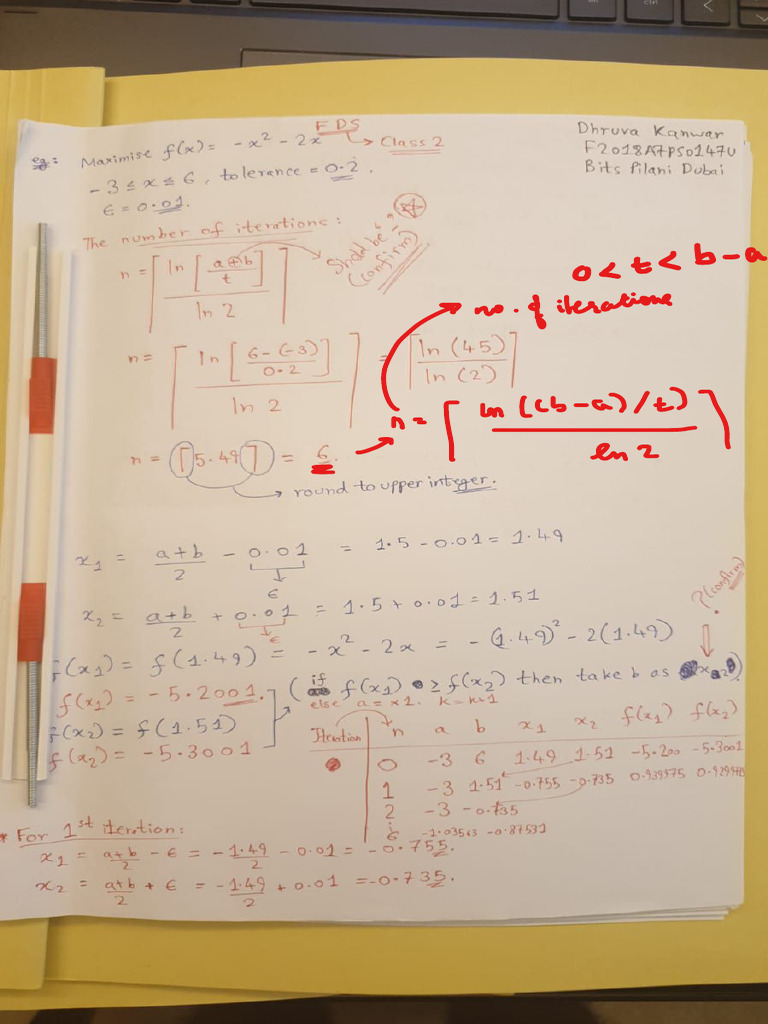 FDS
→ Class 2
Dhruva Kanwar
F2018A7PS0147U
Bits Pilani Dubai
eg: Maximise f(x) = -x² - 2x
-3 ≤ x ≤ 6, tolerance = 0.2.
ϵ = 0.01.
The number of iterations:
n = ⌈ ln [ (a+b) / t ] / ln 2 ⌉
→ should be "-" (confirm)
0 < t < b - a
no. of iterations
n = ⌈ ln [ (6-(-3)) / 0.2 ] / ln 2 ⌉ = ⌈ ln (45) / ln (2) ⌉
n = ⌈ ln ((b-a)/t) / ln 2 ⌉
n = ⌈5.49⌉ = 6.
→ round to upper integer.
x₁ = (a+b)/2 - 0.01 = 1.5 - 0.01 = 1.49
ϵ
x₂ = (a+b)/2 + 0.01 = 1.5 + 0.01 = 1.51
ϵ
? (confirm)
f(x₁) = f(1.49) = -x² - 2x = -(1.49)² - 2(1.49)
f(x₁) = -5.2001.
(if f(x₁) ≥ f(x₂) then take b as x₂)
else a = x1. k = k+1
f(x₂) = f(1.51)
f(x₂) = -5.3001
Iteration n a b x₁ x₂ f(x₁) f(x₂)
0 -3 6 1.49 1.51 -5.200 -5.3001
1 -3 1.51 -0.755 -0.735 0.939975
2 -3 -0.735
6 -1.03563 -0.87531
* For 1st itertion:
x₁ = (a+b)/2 - ϵ = -1.49/2 - 0.01 = -0.755.
x₂ = (a+b)/2 + ϵ = -1.49/2 + 0.01 = -0.735.